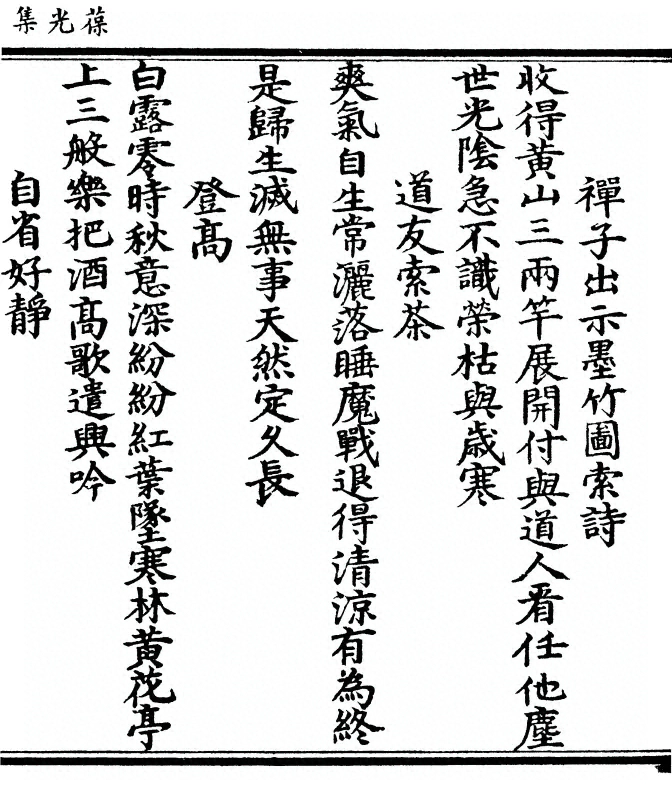 葆光集
禪子出示墨竹圖索詩
收得黄山三兩竿展開付與道人看任他塵
世光陰急不識榮枯與歲寒
道友索茶
爽氣自生常灑落睡魔戰退得清涼有為終
是歸生滅無事天然定久長
登高
白露零時秋意深紛紛紅葉墜寒林黄花亭
上三般樂把酒高歌遣興吟
自省好靜